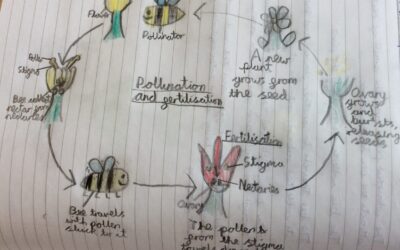 Flower
Pollinator
Pollen
Stigma
Bee collects
nectar from
nectaries
Pollination
and fertilisation
A new
plant
grows from
the seed
Ovary
grows
and
bursts,
releasing
seeds
Fertilisation
Stigma
Netaries
Ovary
Bee travels
with pollen
stuck to it
The pollen
from the stigma
travels